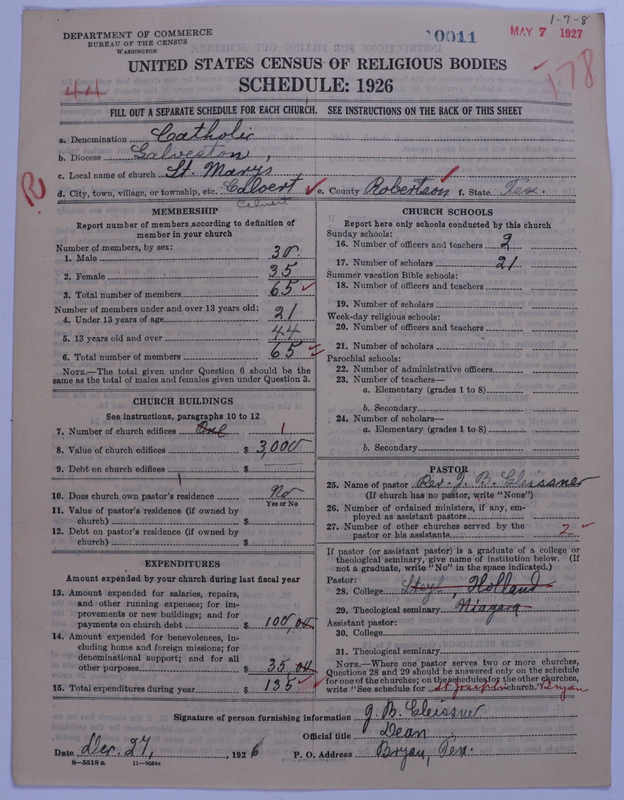 1-7-8
DEPARTMENT OF COMMERCE
BUREAU OF THE CENSUS
WASHINGTON
0011
MAY 7 1927
UNITED STATES CENSUS OF RELIGIOUS BODIES
SCHEDULE: 1926
44
178
FILL OUT A SEPARATE SCHEDULE FOR EACH CHURCH. SEE INSTRUCTIONS ON THE BACK OF THIS SHEET
a. Denomination Catholic
b. Diocese Galveston,
c. Local name of church St. Marys
R
d. City, town, village, or township, etc. Calvert e. County Robertson f. State Tex.
Calvert
MEMBERSHIP
Report number of members according to definition of
member in your church
Number of members, by sex:
1. Male 30
2. Female 35
3. Total number of members 65
Number of members under and over 13 years old:
4. Under 13 years of age 21
5. 13 years old and over 44
6. Total number of members 65
NOTE.—The total given under Question 6 should be
same as the total of males and females given under Question 3.
CHURCH BUILDINGS
See instructions, paragraphs 10 to 12
7. Number of church edifices One 1
8. Value of church edifices $ 3,000
9. Debt on church edifices $
10. Does church own pastor's residence No
Yes or No
11. Value of pastor's residence (if owned by
church) $
12. Debt on pastor's residence (if owned by
church) $
EXPENDITURES
Amount expended by your church during last fiscal year
13. Amount expended for salaries, repairs,
and other running expenses; for im-
provements or new buildings; and for
payments on church debt $ 100,00
14. Amount expended for benevolences, in-
cluding home and foreign missions; for
denominational support; and for all
other purposes $ 35 00
15. Total expenditures during year $ 135
CHURCH SCHOOLS
Report here only schools conducted by this church
Sunday schools:
16. Number of officers and teachers 2
17. Number of scholars 21
Summer vacation Bible schools:
18. Number of officers and teachers
19. Number of scholars
Week-day religious schools:
20. Number of officers and teachers
21. Number of scholars
Parochial schools:
22. Number of administrative officers
23. Number of teachers—
a. Elementary (grades 1 to 8)
b. Secondary
24. Number of scholars—
a. Elementary (grades 1 to 8)
b. Secondary
PASTOR
25. Name of pastor Rev. J. B. Gleissner
(If church has no pastor, write "None")
26. Number of ordained ministers, if any, em-
ployed as assistant pastors
27. Number of other churches served by the
pastor or his assistants 2
If pastor (or assistant pastor) is a graduate of a college or
theological seminary, give name of institution below. (If
not a graduate, write "No" in the space indicated.)
Pastor:
28. College Steyl, Holland
29. Theological seminary Niagara
Assistant pastor:
30. College
31. Theological seminary
NOTE.—Where one pastor serves two or more churches,
Questions 28 and 29 should be answered only on the schedule
for one of the churches; on the schedules for the other churches,
write "See schedule for St Josephs church." Bryan
Signature of person furnishing information J. B. Gleissner
Official title Dean
Date Dec. 27, 1926 P. O. Address Bryan, Tex.
8—5518 a 11—9084a